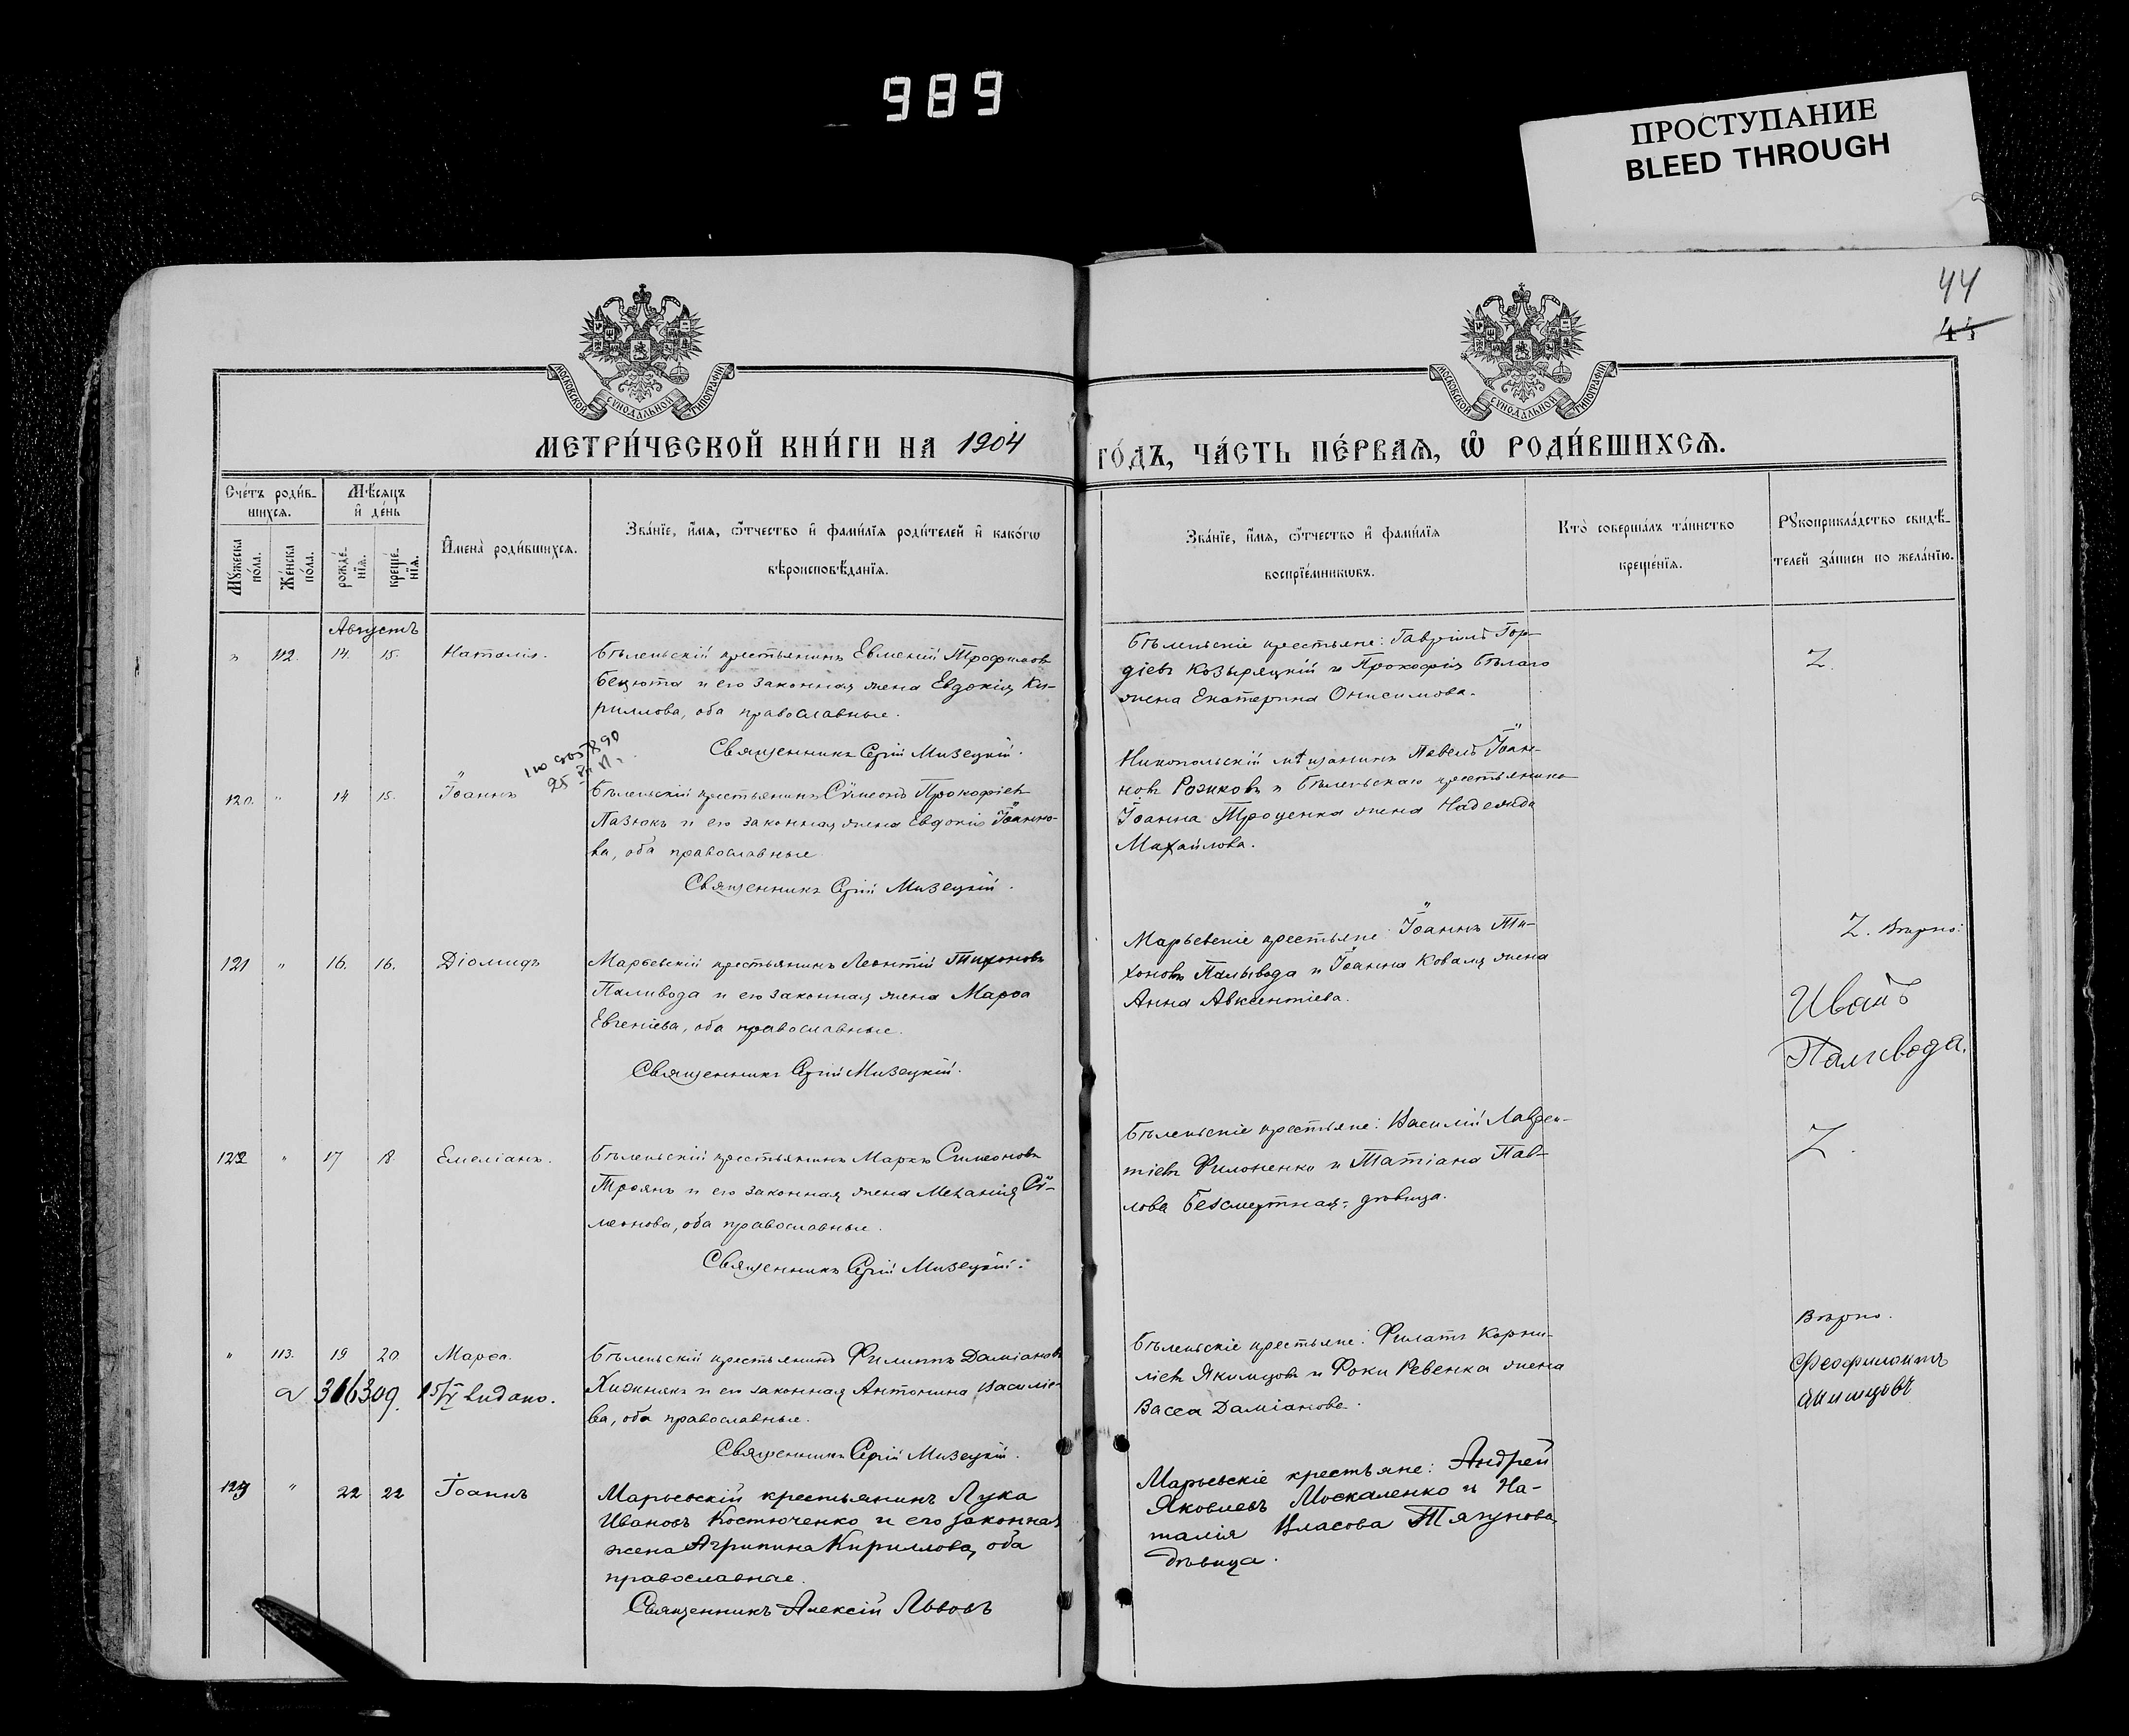 989
ПРОСТУПАНИЕ
BLEED THROUGH
44
МОСКОВСКОЙ СѴНОДАЛЬНОЙ ТИПОГРАФІИ
МОСКОВСКОЙ СѴНОДАЛЬНОЙ ТИПОГРАФІИ
МЕТРИ́ЧЕСКОЙ КНИ́ГИ НА 1904
ГО́ДЪ, ЧА́СТЬ ПЕ́РВАѦ, Ѡ҆ РОДИ́ВШИХСѦ.
Сче́тъ роди́в-
шихсѧ.
Мѣ́сѧцъ
и҆ де́нь
Мꙋ́жеска
по́ла.
Же́нска
по́ла.
рожде́-
нїѧ.
креще́-
нїѧ.
И҆мена̀ роди́вшихсѧ.
Зва́нїе, и҆́мѧ, ѻ҆́тчество и҆ фами́лїѧ роди́телей и҆ како́гѡ
вѣроисповѣ́данїѧ.
Зва́нїе, и҆́мѧ, ѻ҆́тчество и҆ фами́лїѧ
воспрїе́мникѡвъ.
Кто̀ соверша́лъ та́инство
креще́нїѧ.
Рꙋкоприкла́дство свидѣ́-
телей за́писи по жела́нїю.
Августъ
" 112. 14. 15. Наталія.
Бѣленьскій крестьянинъ Евмений Трофимовъ
Бецюта и его законная жена Евдокія Ки-
риллова, оба православные.
Священникъ Сергій Мизецкій.
Бѣленьскіе крестьяне: Гавріилъ Гор-
діевъ Козыряцкій и Прокофія Бѣлаго
жена Екатерина Онисимова.
Z
120. " 14 15. Іоаннъ
Бѣленьскій крестьянинъ Сѵмеонъ Прокофіевъ
Пазюкъ и его законная жена Евдокія Іоанно-
ва, оба православные.
Священникъ Сергій Мизецкій.
Никопольскій мѣщанинъ Павелъ Іоан-
новъ Рожковъ и Бѣленьскаго крестьянина
Іоанна Троценка жена Надежда
Михайлова.
121 " 16. 16. Діомидъ
Марьевскій крестьянинъ Леонтій Тихоновъ
Паливода и его законная жена Марѳа
Евгеніева, оба православные.
Священникъ Сергій Мизецкій.
Марьевскіе крестьяне: Іоаннъ Ти-
хоновъ Паливода и Іоанна Коваля жена
Анна Авксентіева.
Z. Вѣрно:
Иванъ
Паливода.
122 " 17 18 Емеліанъ.
Бѣленьскій крестьянинъ Маркъ Симеоновъ
Троянъ и его законная жена Меланія Сѵ-
меонова, оба православные.
Священникъ Сергій Мизецкій.
Бѣленьскіе крестьяне: Василій Лаврен-
тіевъ Филоненко и Татіана Пав-
лова Безсмертная, дѣвица.
Z.
" 113. 19 20. Марѳа.
Бѣленьскій крестьянинъ Филиппъ Даміановъ
Хижнякъ и его законная Антонина Василіе-
ва, оба православные.
Священникъ Сергій Мизецкій.
Бѣленьскіе крестьяне: Филатъ Корни-
ліевъ Якимцовъ и Фоки Ревенка жена
Васса Даміанова.
Вѣрно.
123 " 22 22 Іоаннъ
Марьевскій крестьянинъ Лука
Ивановъ Костюченко и его законная
жена Агрипина Кириллова, оба
православные.
Священникъ Алексій Львовъ
Марьевскіе крестьяне: Андрей
Яковлевъ Москаленко и На-
талія Власова Тягунова
дѣвица.